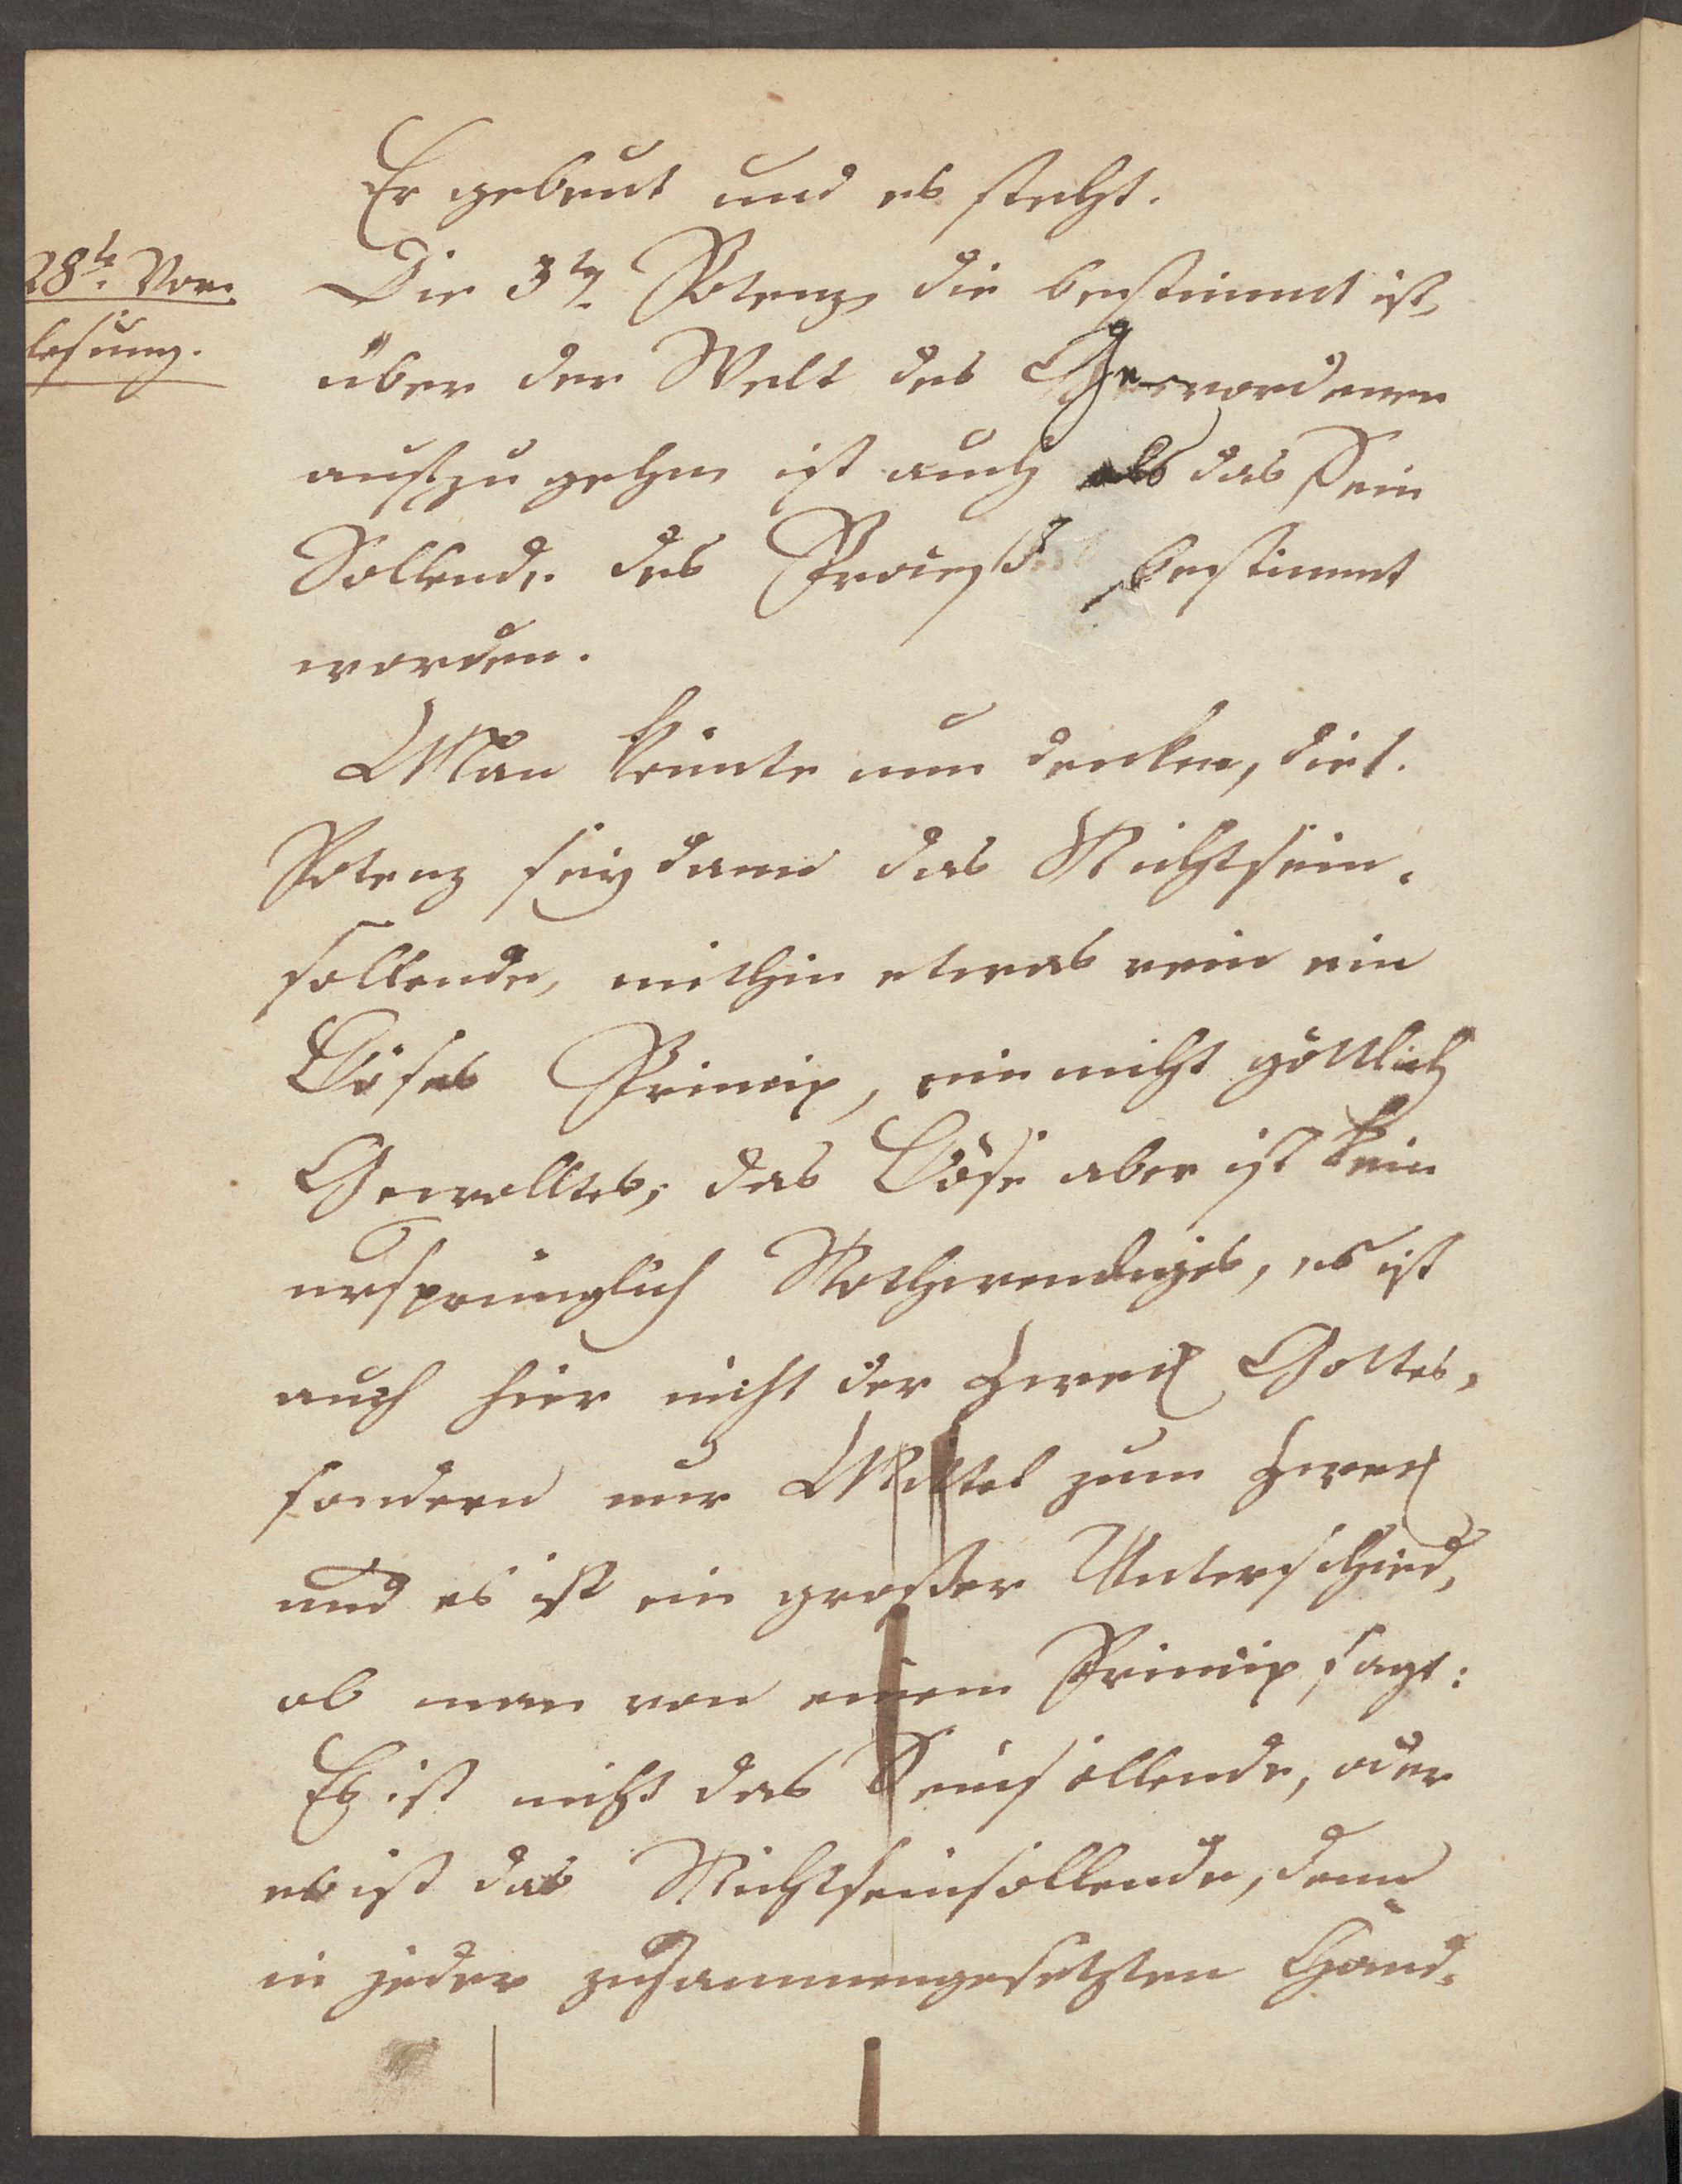 Er gebeut und es steht.
28te. Vor-
lesung.
Die 3te Potenz, die bestimmt ist,
über der Welt des Gewordenen
auszugehen ist auch als das Sein
Sollende des Processes bestimmt
worden.
Man könnte nun denken, die 1.
Potenz sey dann das Nichtsein-
sollende, mithin etwas rein ein
Böses Princip, ein nicht göttlich
Gewolltes; das Böse aber ist kein
ursprünglich Nothwendiges, es ist
auch hier nicht der Zweck Gottes,
sondern nur Mittel zum Zweck
und es ist ein großer Unterschied,
ob man von einem Princip sagt:
Es ist nicht das Seinsollende, oder
es ist das Nichtseinsollende, denn
in jeder zusammengesetzten Hand-